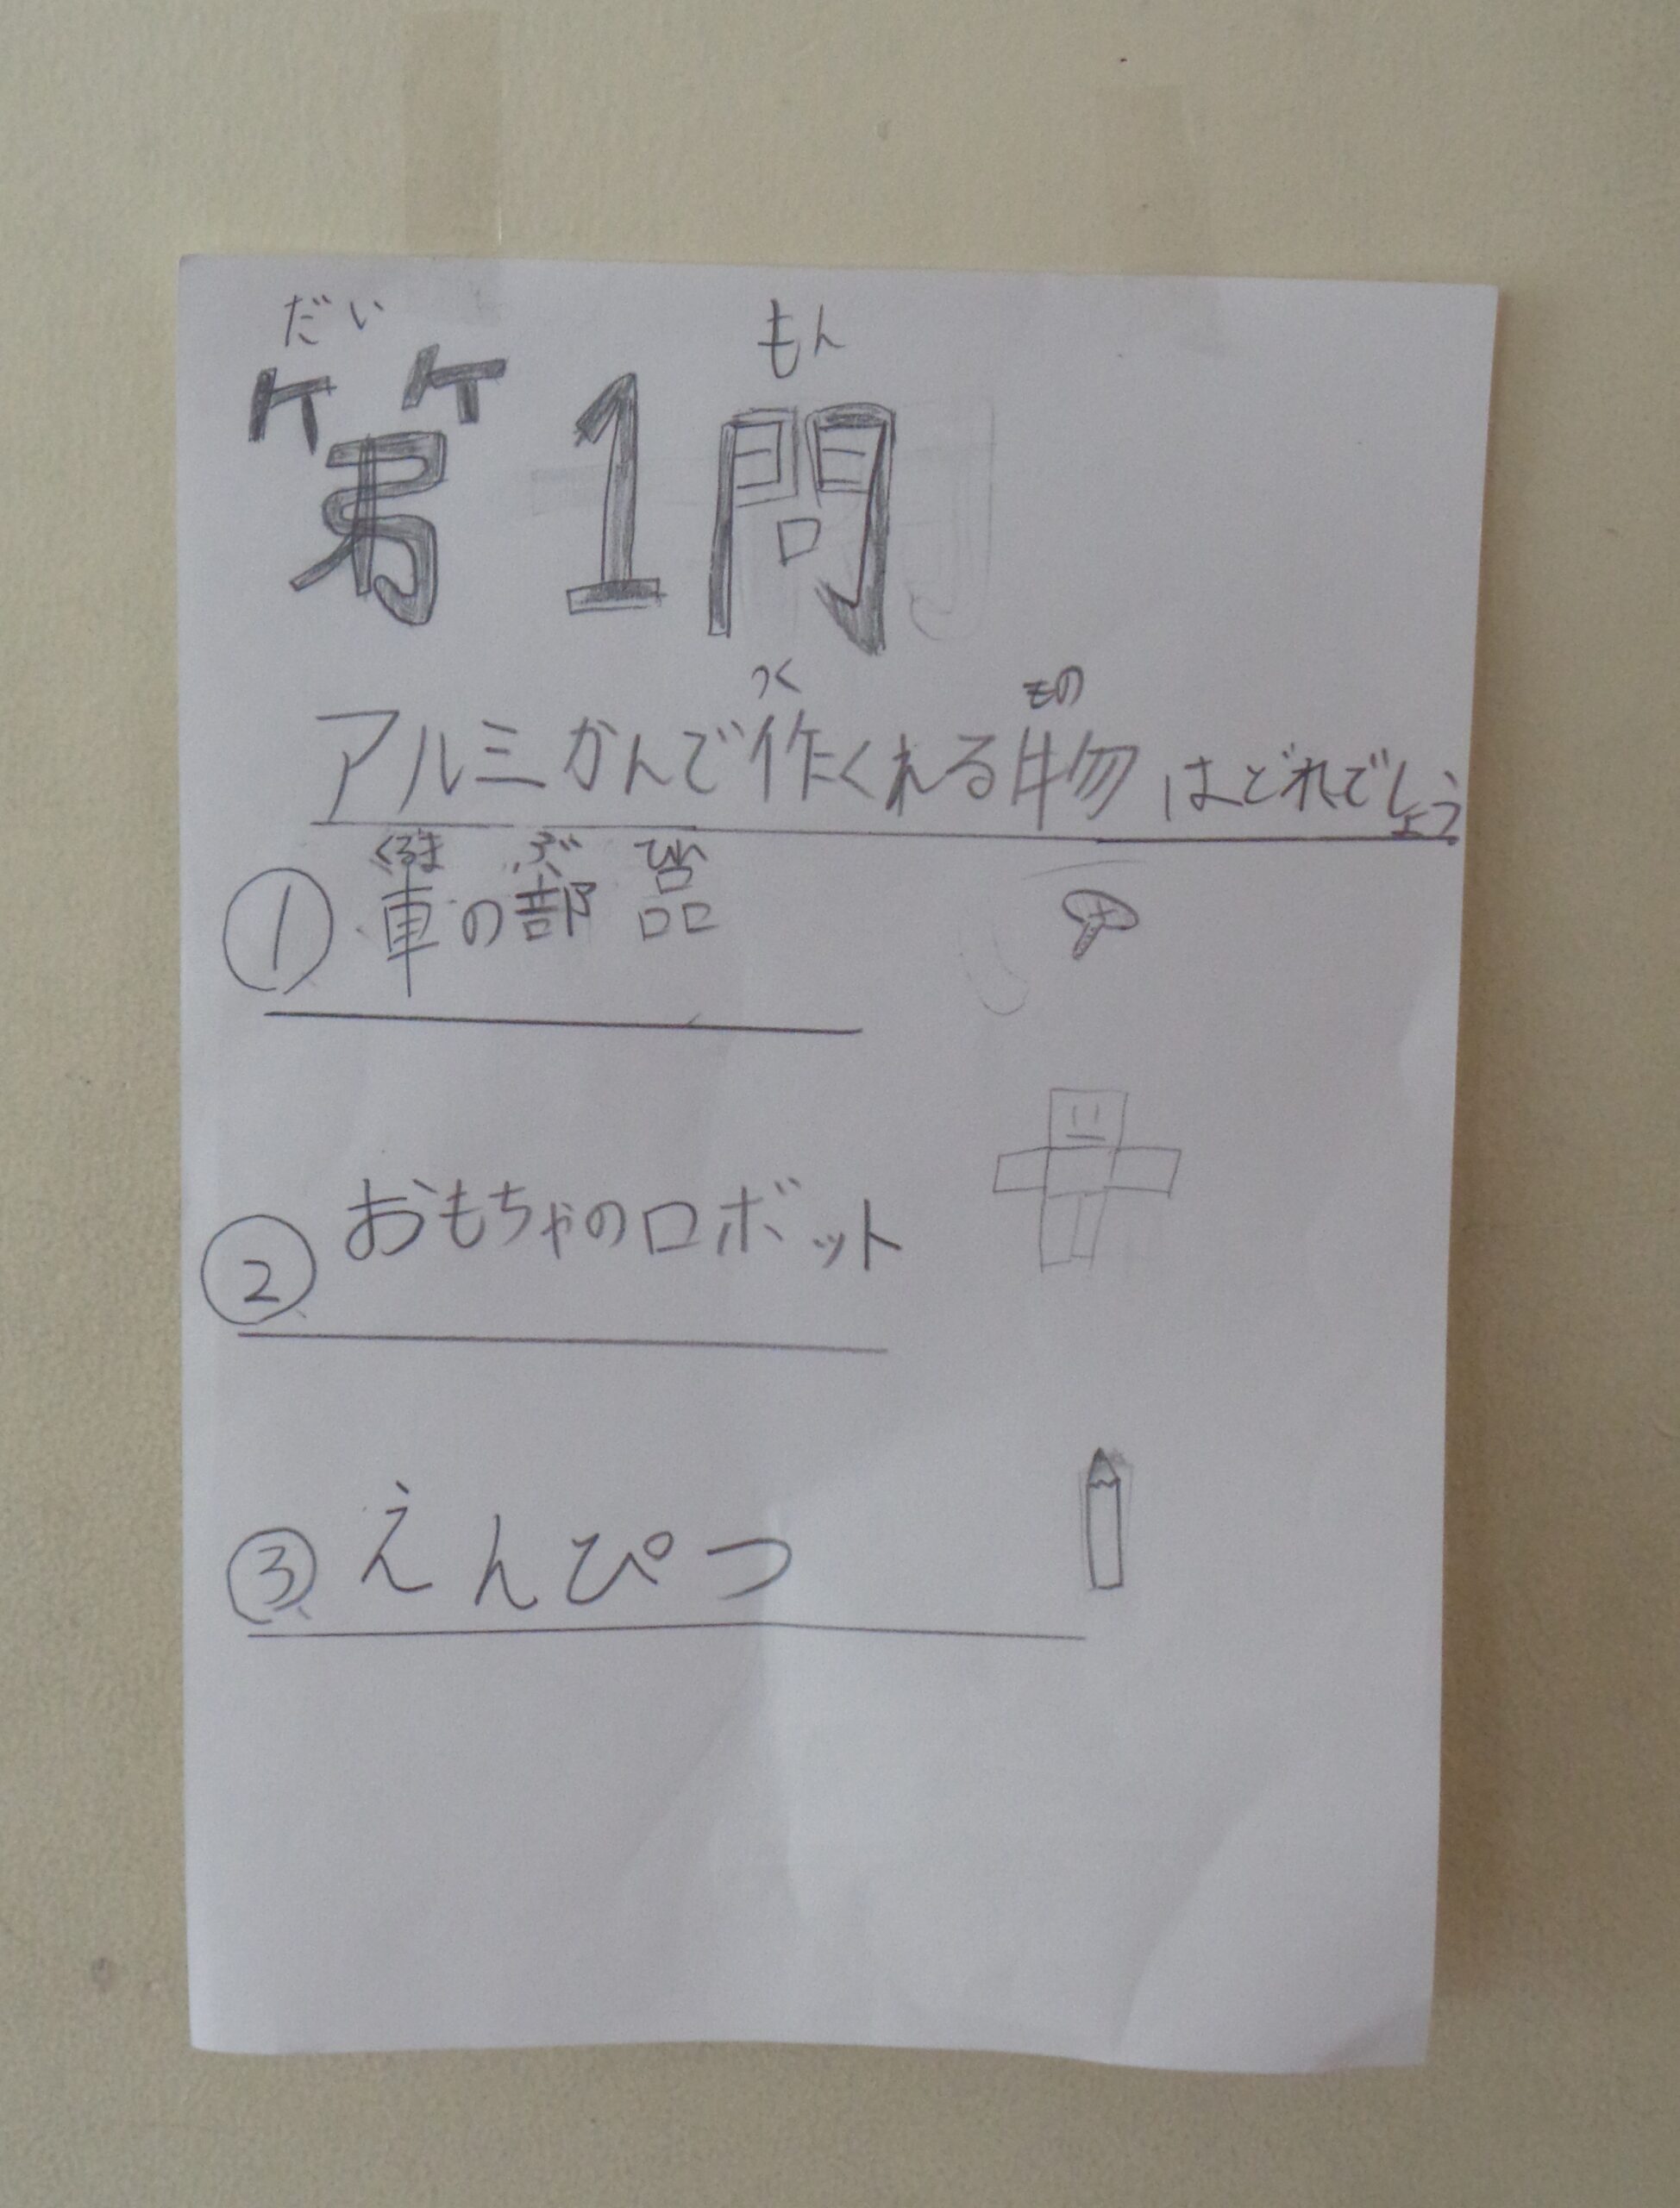 だい もん
第1問
つく もの
アルミかんで作くれる物はどれでしょう
くるま ぶ ひん
① 車の部品
② おもちゃのロボット
③ えんぴつ